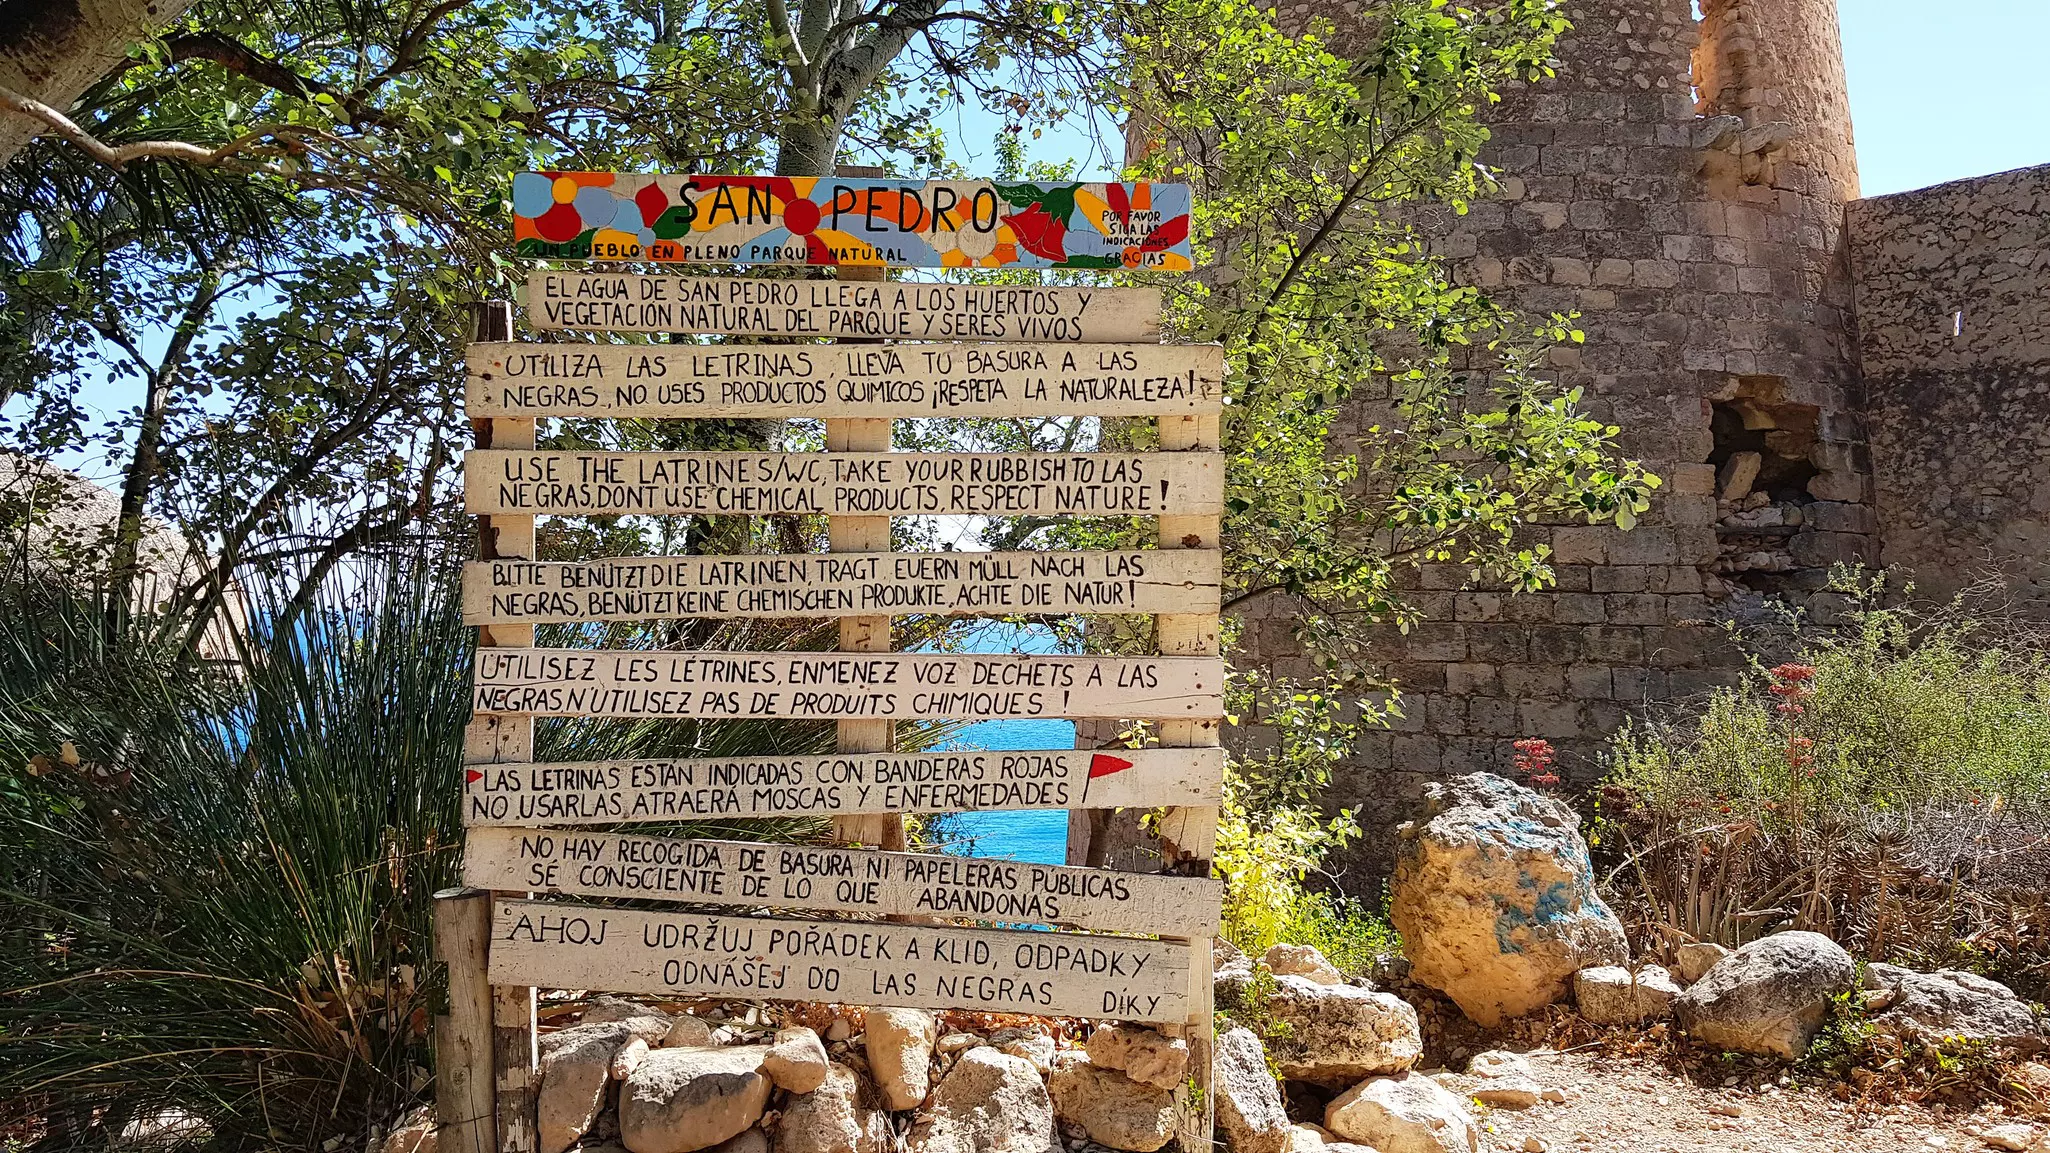 SAN PEDRO
UN PUEBLO EN PLENO PARQUE NATURAL
POR FAVOR
SIGA LAS
INDICACIONES
GRACIAS
EL AGUA DE SAN PEDRO LLEGA A LOS HUERTOS Y
VEGETACION NATURAL DEL PARQUE Y SERES VIVOS
UTILIZA LAS LETRINAS, LLEVA TU BASURA A LAS
NEGRAS, NO USES PRODUCTOS QUIMICOS ¡RESPETA LA NATURALEZA!
USE THE LATRINES/WC, TAKE YOUR RUBBISH TO LAS
NEGRAS, DONT USE CHEMICAL PRODUCTS, RESPECT NATURE!
BITTE BENÜTZT DIE LATRINEN, TRAGT EUERN MÜLL NACH LAS
NEGRAS, BENÜTZT KEINE CHEMISCHEN PRODUKTE, ACHTE DIE NATUR!
UTILISEZ LES LÉTRINES, ENMENEZ VOZ DECHETS A LAS
NEGRAS, N'UTILISEZ PAS DE PRODUITS CHIMIQUES!
LAS LETRINAS ESTÁN INDICADAS CON BANDERAS ROJAS
NO USARLAS, ATRAERÁ MOSCAS Y ENFERMEDADES
NO HAY RECOGIDA DE BASURA NI PAPELERAS PÚBLICAS
SÉ CONSCIENTE DE LO QUE ABANDONAS
AHOJ UDRŽUJ POŘÁDEK A KLID, ODPADKY
ODNÁŠEJ DO LAS NEGRAS DÍKY